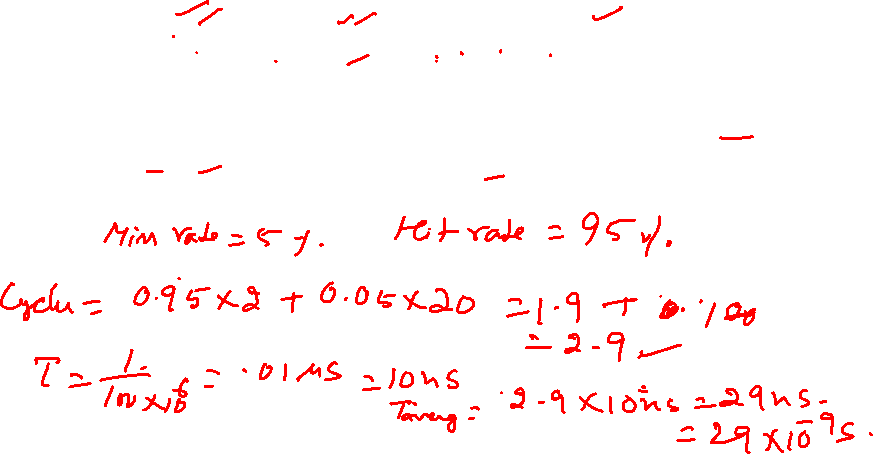 Miss rate = 5 %. Hit rate = 95 %.
Cycles = 0.95 x 2 + 0.05 x 20 = 1.9 +
= 2.9
T = 1 / 100 x 10^6 = .01 µs = 10ns
= 2.9 x 10ns = 29ns.
= 29 x 10^-9 s.